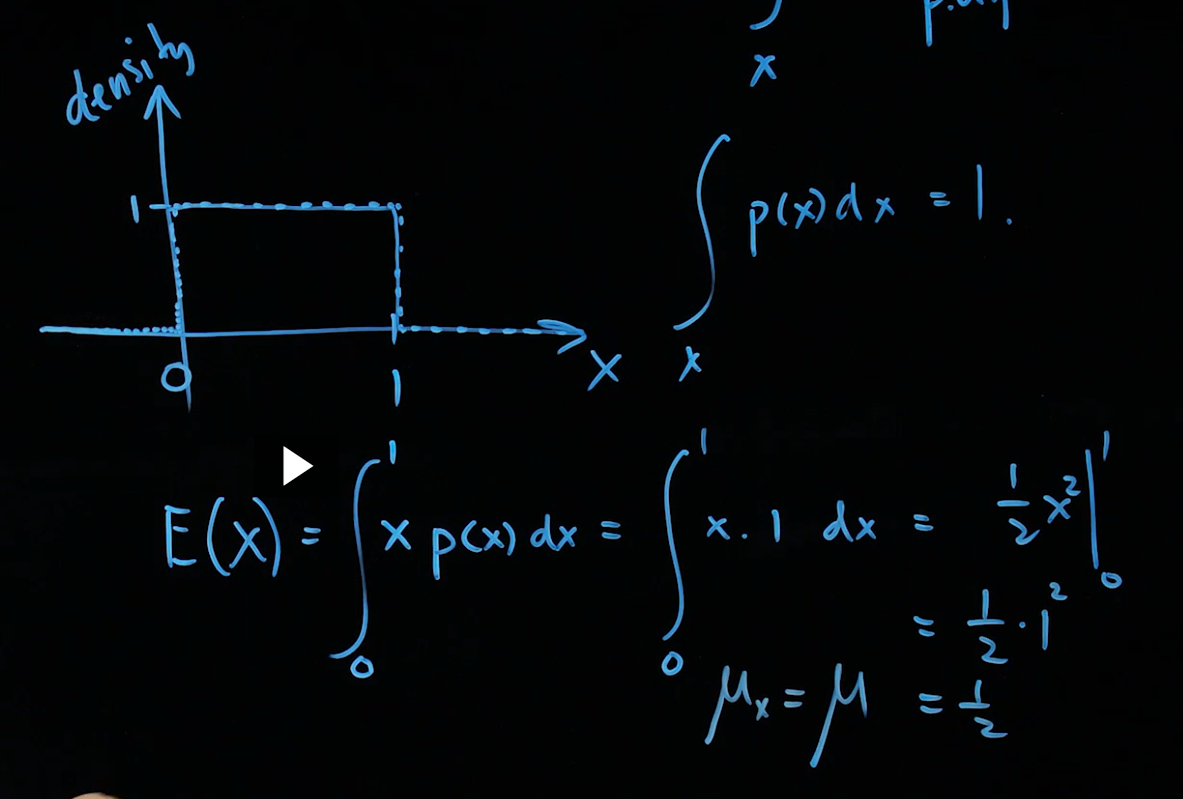 density
x
∫ p(x) dx = 1.
x
1
0
1
x
E(x) = ∫₀¹ x p(x) dx = ∫₀¹ x . 1 dx = 1/2 x² |₀¹
= 1/2 · 1²
μₓ = μ = 1/2